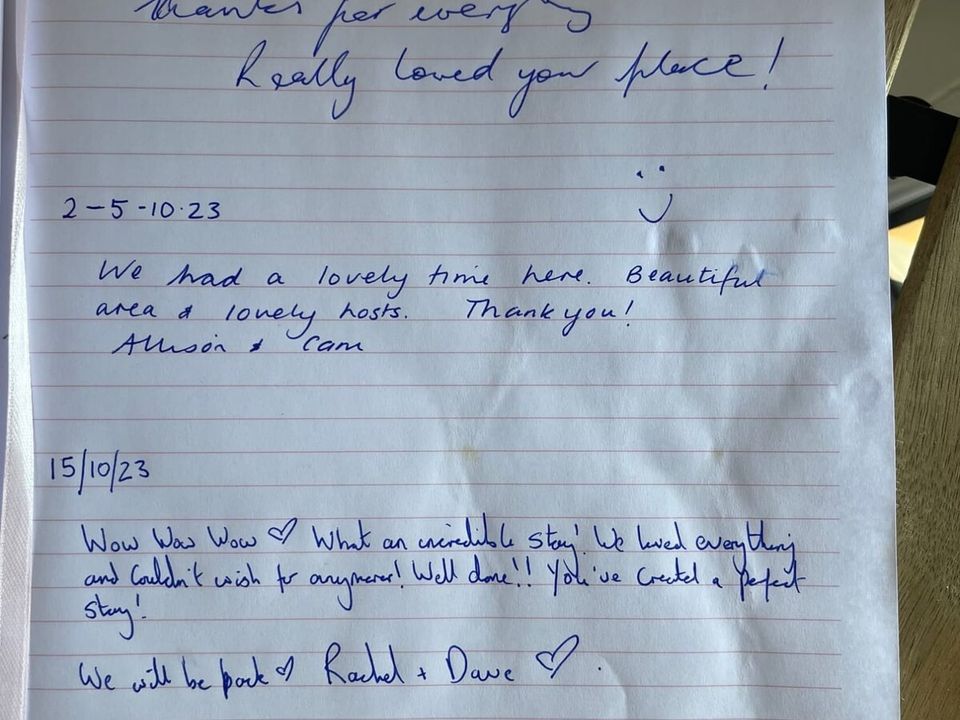 Thanks for everything
Really loved your place!
2-5-10.23
We had a lovely time here. Beautiful
area & lovely hosts. Thank you!
Allison & Cam
15/10/23
Wow Wow Wow ♡ What an incredible stay! We loved everything
and couldn't wish for anymore! Well done!! You've created a perfect
stay!
We will be back ♡ Rachel + Dave ♡.